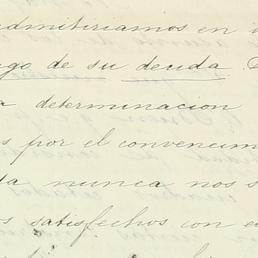 admitiriamos en
go de su deuda.
a determinacion
s por el convencim
da nunca nos s
os satisfechos con e